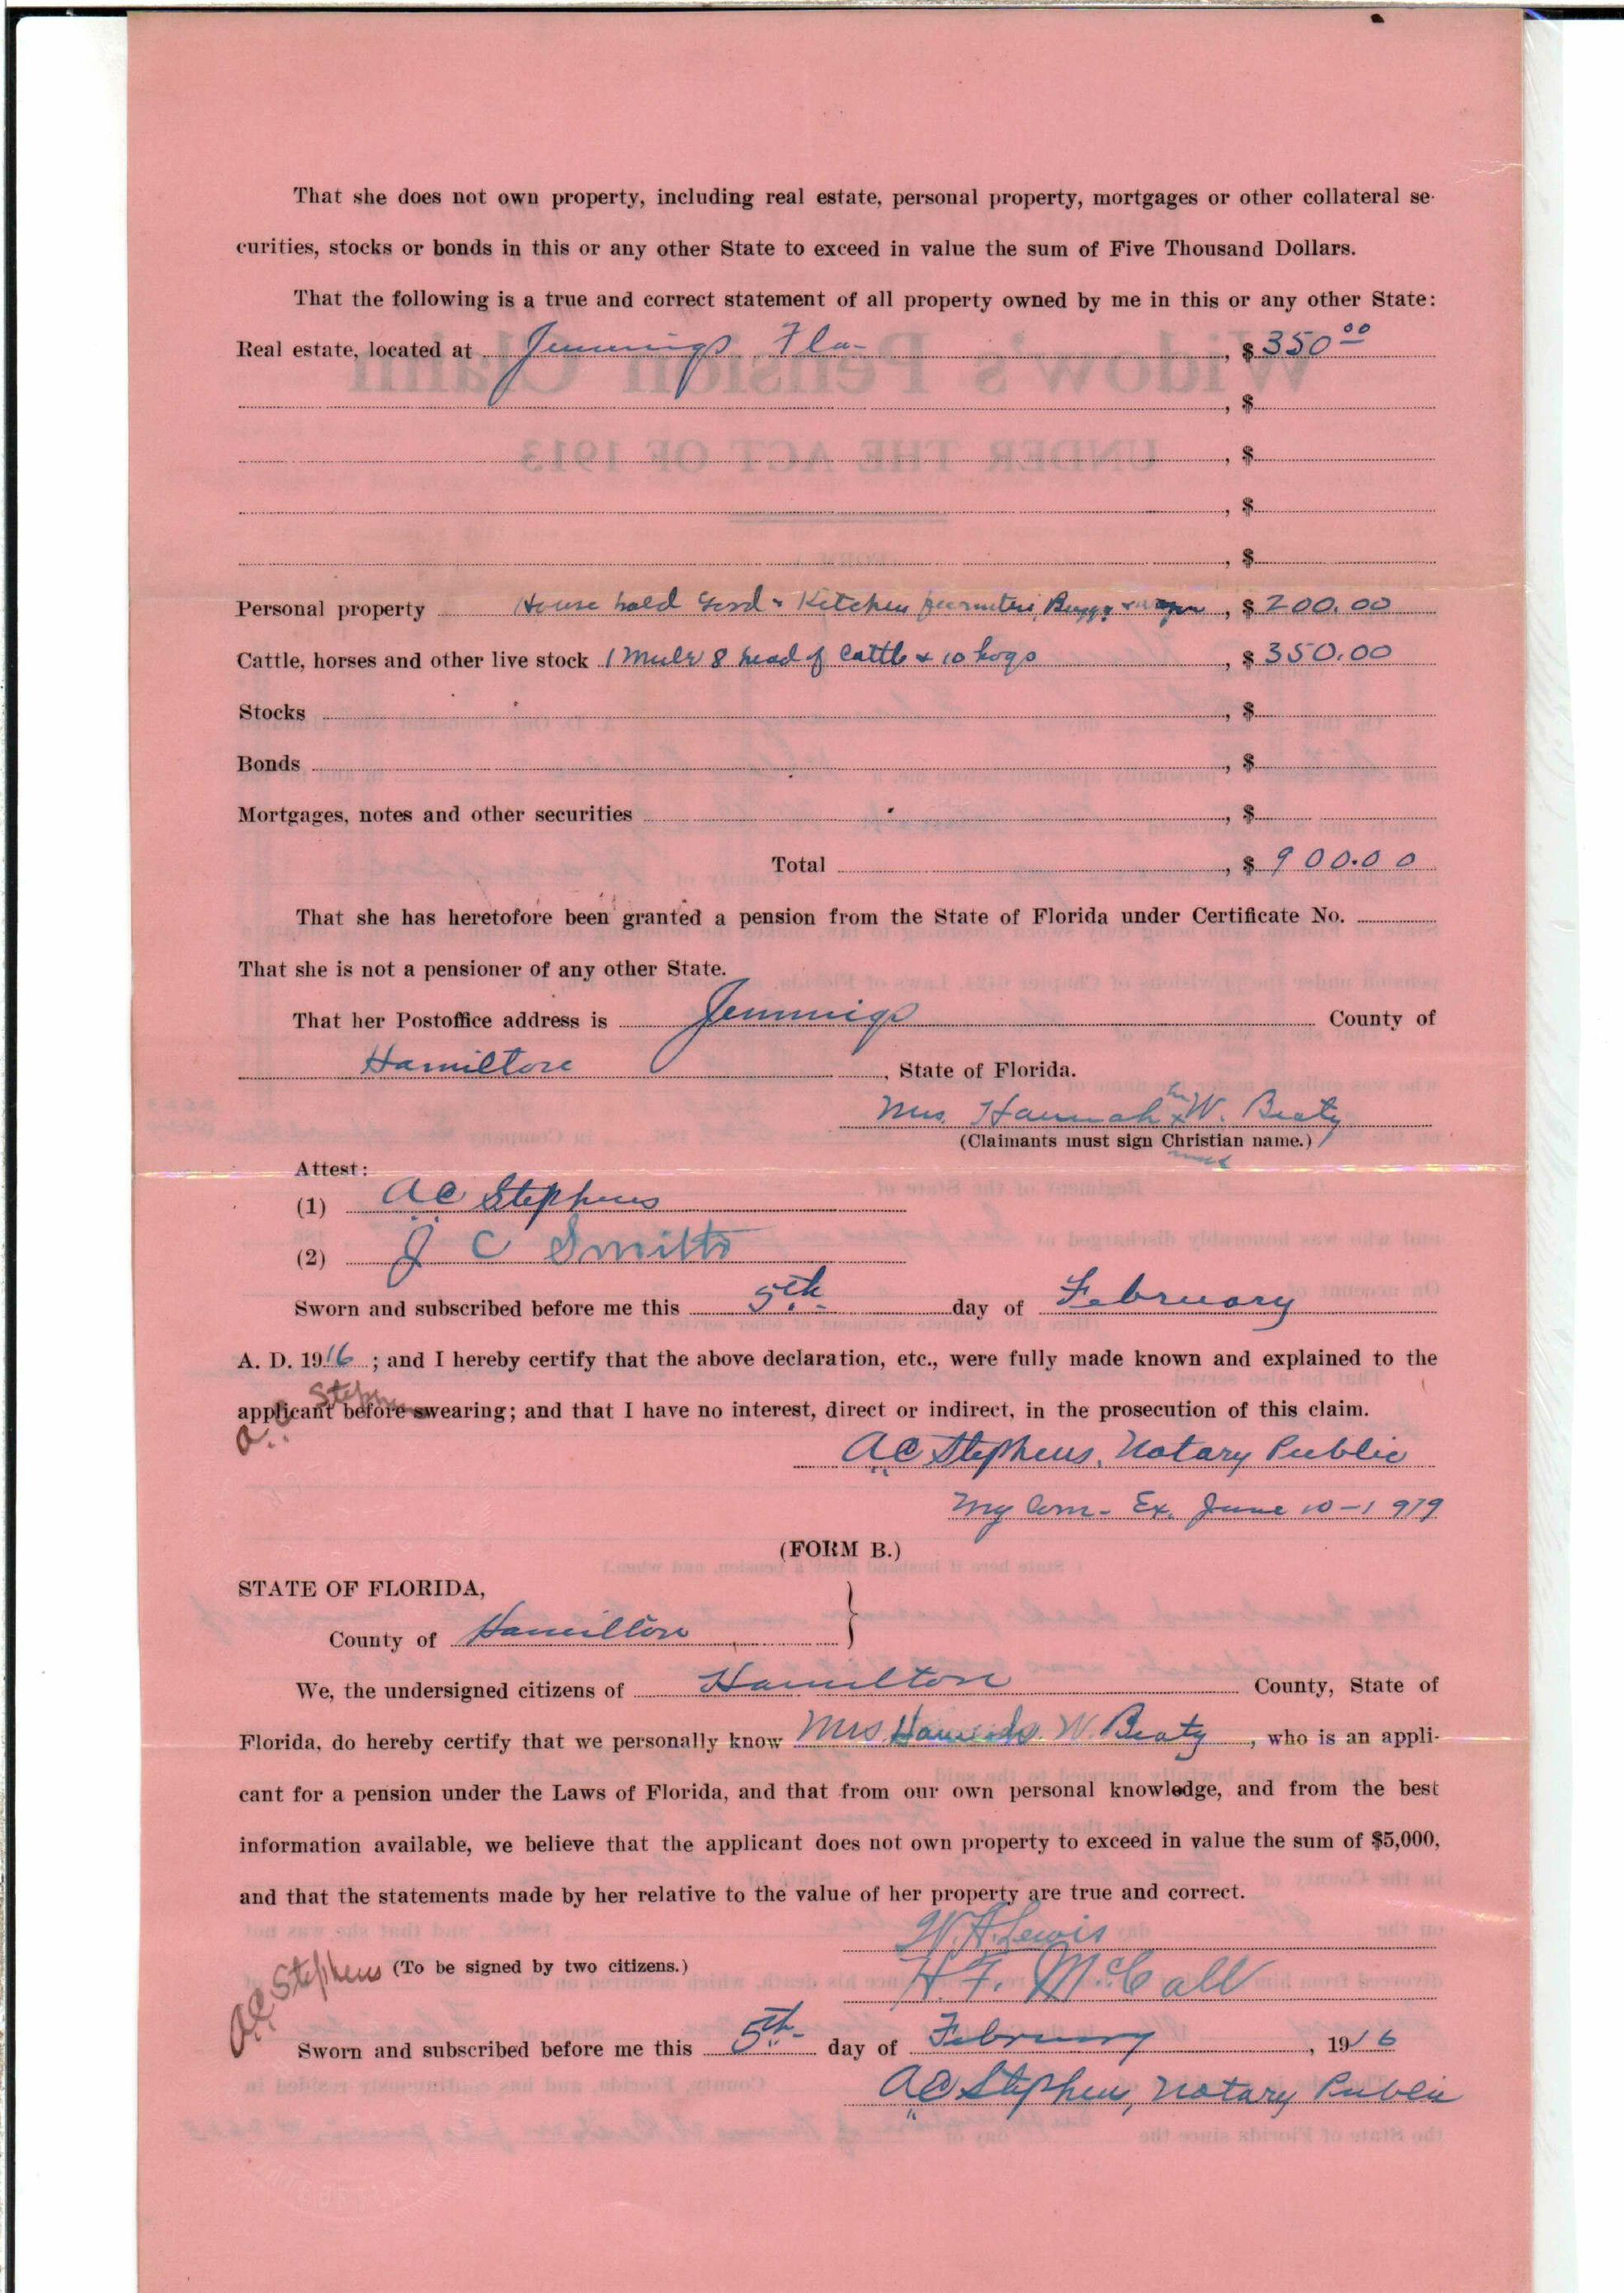 That she does not own property, including real estate, personal property, mortgages or other collateral se-
curities, stocks or bonds in this or any other State to exceed in value the sum of Five Thousand Dollars.
That the following is a true and correct statement of all property owned by me in this or any other State:
Real estate, located at Jennings Fla- , $ 350 00
, $
, $
, $
, $
Personal property House hold Good & Kitchen , Buggy & wagon , $ 200.00
Cattle, horses and other live stock 1 Mule 8 head of Cattle & 10 hogs , $ 350.00
Stocks , $
Bonds , $
Mortgages, notes and other securities , $
Total , $ 900.00
That she has heretofore been granted a pension from the State of Florida under Certificate No.
That she is not a pensioner of any other State.
That her Postoffice address is Jennings County of
Hamilton , State of Florida.
Mrs. Hannah her x W. Beaty
(Claimants must sign Christian name.)
mark
Attest:
(1) A C Stephens
(2) J C Smith
Sworn and subscribed before me this 5th day of February
A. D. 1916 ; and I hereby certify that the above declaration, etc., were fully made known and explained to the
applicant before swearing; and that I have no interest, direct or indirect, in the prosecution of this claim.
A C Stephens, Notary Public
My Com- Ex. June 10-1919
(FORM B.)
STATE OF FLORIDA, }
County of Hamilton
We, the undersigned citizens of Hamilton County, State of
Florida, do hereby certify that we personally know Mrs. Hannah W. Beaty , who is an appli-
cant for a pension under the Laws of Florida, and that from our own personal knowledge, and from the best
information available, we believe that the applicant does not own property to exceed in value the sum of $5,000,
and that the statements made by her relative to the value of her property are true and correct.
W. H. Lewis
A C Stephens (To be signed by two citizens.)
H. F. McCall
Sworn and subscribed before me this 5th day of February , 1916
A C Stephens, Notary Public